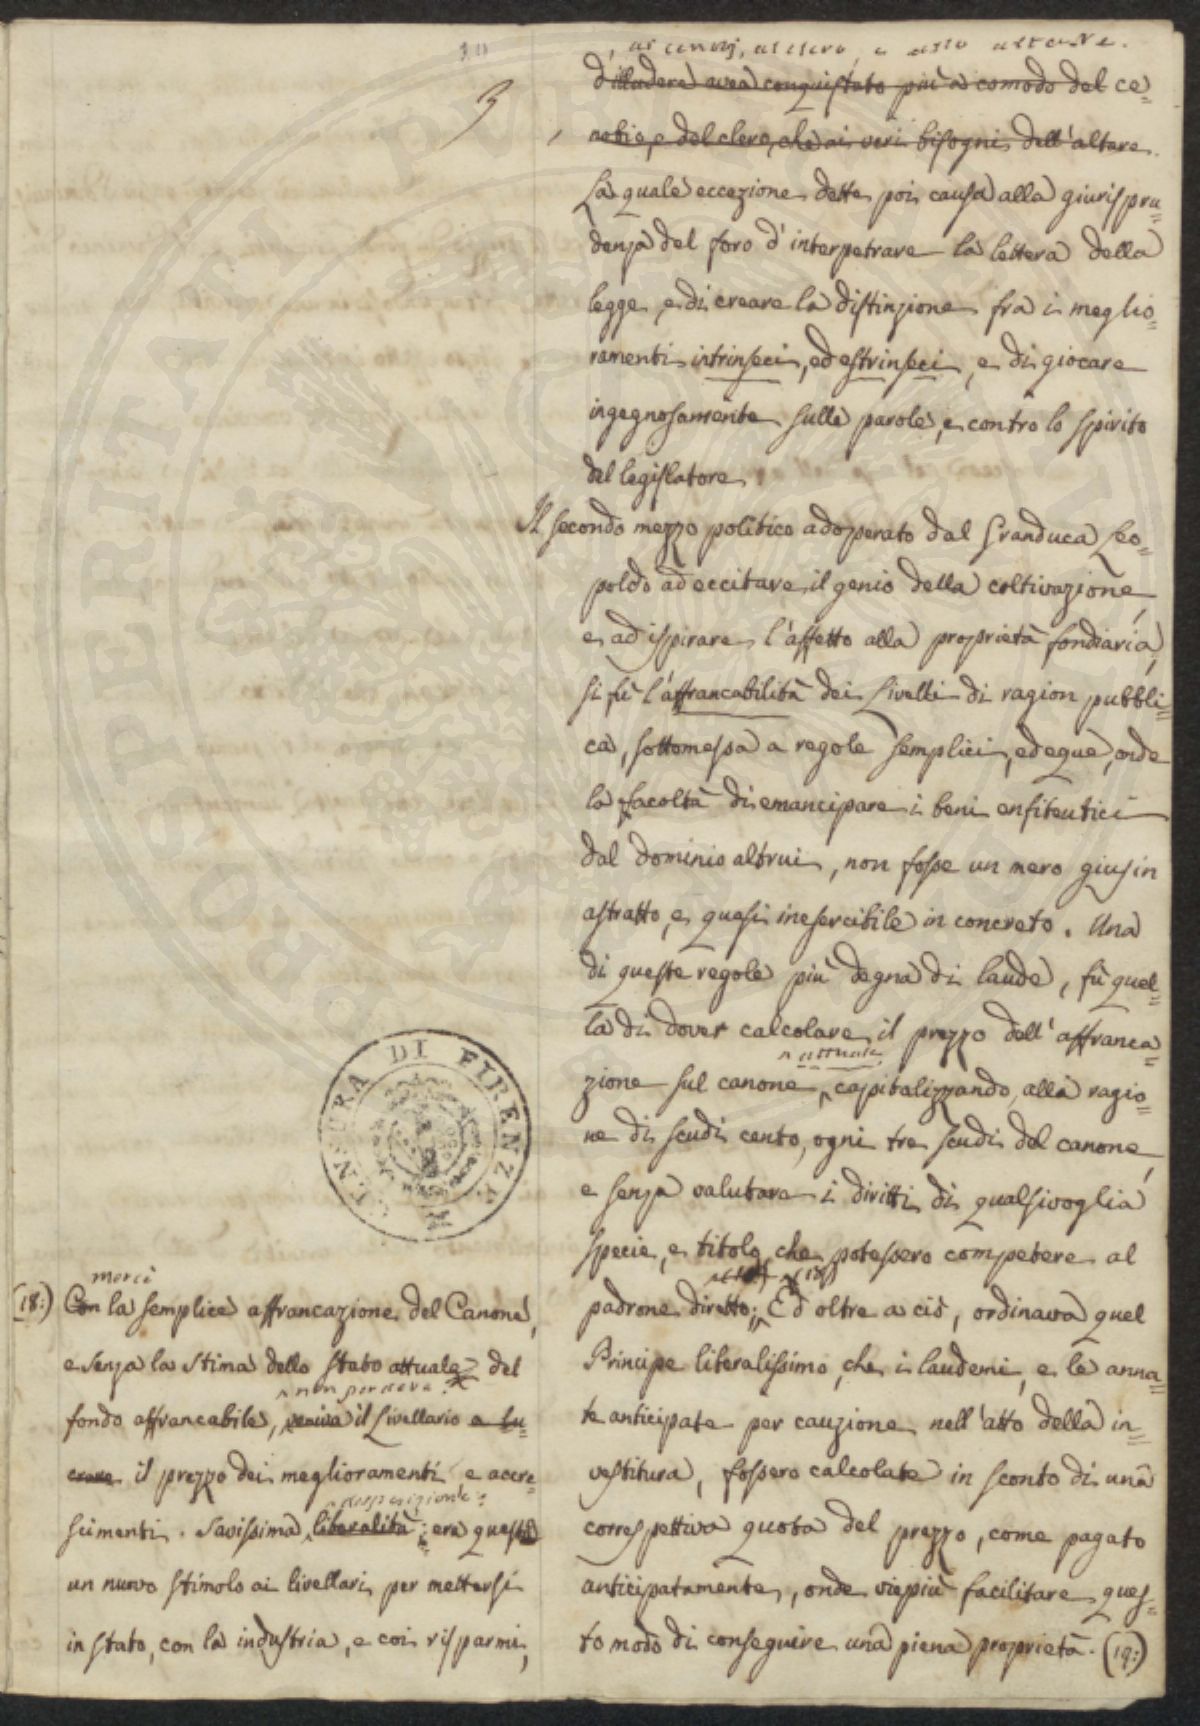 30
3
d'illudere avea conquistato più a comodo del ce=
nobio, e del clero, che ai veri bisogni dell'altare.
La quale eccezione dette poi causa alla giurispru=
denza del foro d'interpetrare la lettera della
legge, e di creare la distinzione fra i meglio=
ramenti intrinseci, ed estrinseci, e di giocare
ingegnosamente sulle parole, e contro lo spirito
del legislatore
Il secondo mezzo politico adoperato dal Granduca Leo=
poldo ad eccitare il genio della coltivazione,
e ad ispirare l'affetto alla proprietà fondiaria,
si fù l'affrancabilità dei Livelli di ragion pubbli=
ca, sottomessa a regole semplici, ed eque, onde
la facoltà di emancipare i beni enfiteutici
dal dominio altrui, non fosse un mero gius in
astratto, e quasi inesercibile in concreto. Una
di queste regole più degna di laude, fù quel=
la di dover calcolare il prezzo dell'affranca=
attuale
zione sul canone, capitalizzando, alla ragio=
ne di scudi cento, ogni tre scudi del canone,
e senza valutare i diritti di qualsivoglia
specie, e titolo, che potessero competere al
(18)
padrone diretto; Ed oltre a ciò, ordinava quel
Principe liberalissimo, che i laudemi, e le anna=
te anticipate per cauzione nell'atto della in=
vestitura, fossero calcolate in sconto di una
correspettiva quota del prezzo, come pagato
anticipatamente, onde viepiù facilitare ques=
to modo di conseguire una piena proprietà. (19:)
mercè
(18:) Con la semplice affrancazione del Canone,
e senza la stima dello stato attuale del
non perdeva
fondo affrancabile, veniva il Livellario a lu=
crare il prezzo dei miglioramenti e accre
disposizione:
scimenti. Savissima liberalità; era questo
un nuovo stimolo ai livellari per mettersi
in stato, con la industria, e coi risparmi,
DI FIRENZE